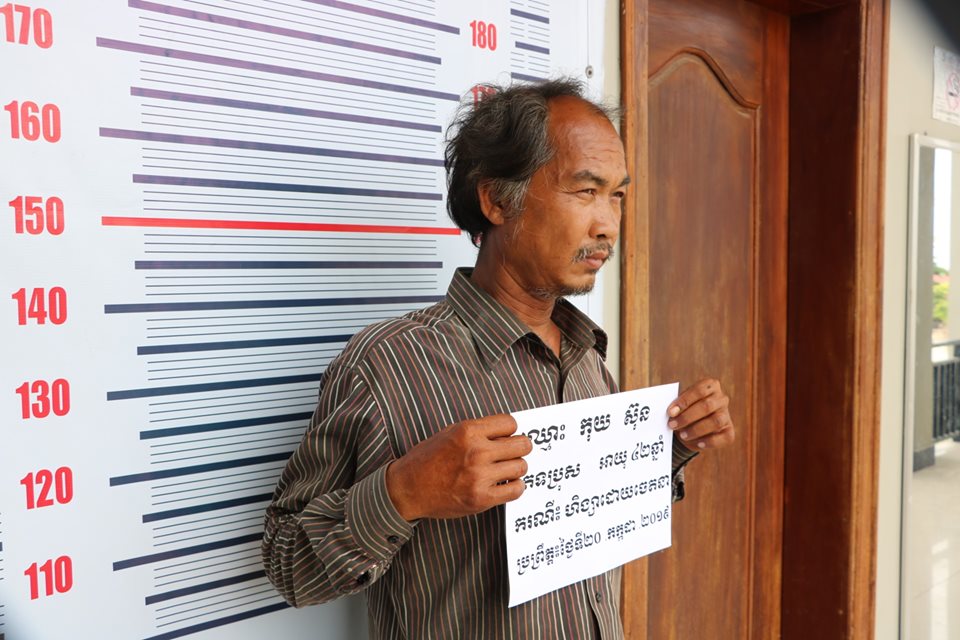 170
160
150
140
130
120
110
180
ឈ្មោះ កុយ ស៊ុន
ភេទប្រុស អាយុ ៤២ឆ្នាំ
ករណី៖ ហិង្សាដោយចេតនា
ប្រព្រឹត្ត៖ថ្ងៃទី២០ .កក្កដា .២០១៩